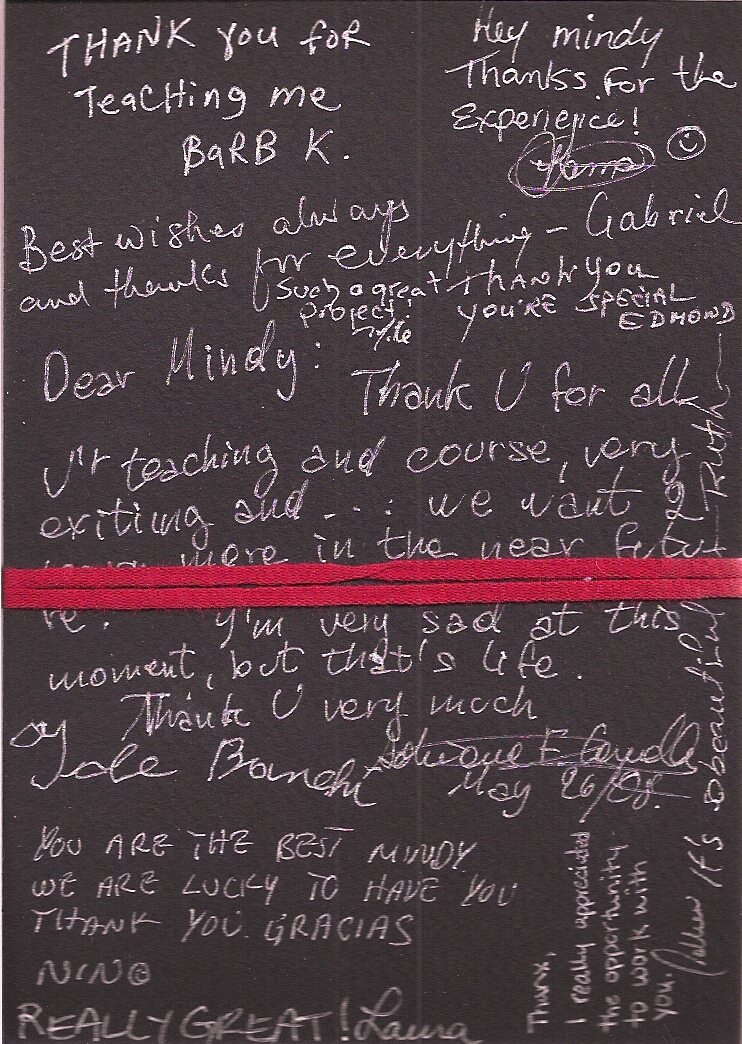 THANK you for
Teaching me
BARB K.
Hey mindy
Thanks for the
Experience!
Best wishes always
and thanks for everything – Gabriel
Such a great
project!
THANK YOU
YOU'RE SPECIAL
EDMOND
Dear Mindy:
Thank U for all
U'r teaching and course, very
exitiing and . . . : we want
more in the near futu
re. I'm very sad at this
moment, but that's life.
Thank U very much
May 26/08.
YOU ARE THE BEST MINDY
WE ARE LUCKY TO HAVE YOU
THANK YOU. GRACIAS
NINO
REALLY GREAT! Laura
Thanx,
I really appreciated
the opportunity
to work with
you.
It's beautiful
Truth